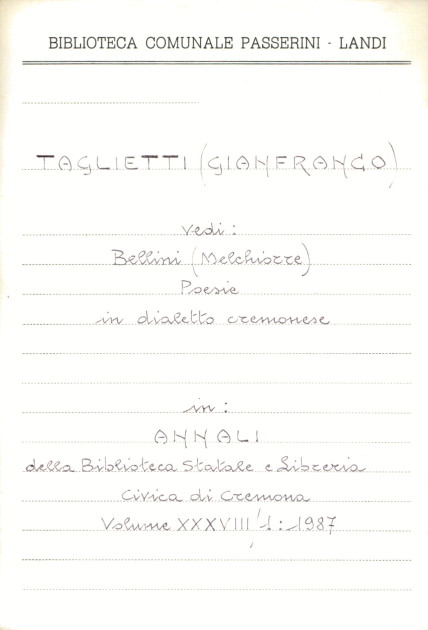 BIBLIOTECA COMUNALE PASSERINI - LANDI
TAGLIETTI (GIANFRANCO)
vedi :
Bellini (Melchiorre)
Poesie
in dialetto cremonese
in :
ANNALI
della Biblioteca Statale e Libreria
Civica di Cremona
Volume XXXVIII/1 : 1987